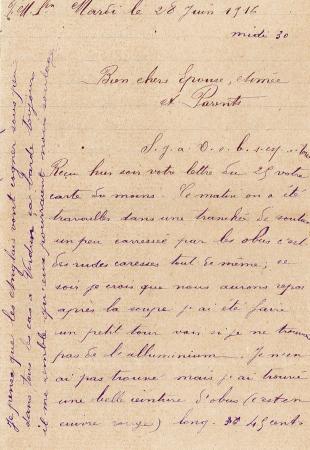 Mardi le 28 Juin 1916
midi 30
Bien chers Epouse, Aimée
et Parents
Reçu hier soir votre lettre du 25 votre
carte du moins. Ce matin on a été
travailler dans une tranchée de soutien
un peu caressé par les obus c'est
des rudes caresses tout de même, ce
soir je crois que nous aurons repos
après la soupe j'ai été faire
un petit tour voir si je ne trouve
pas de l'alluminium. Je n'en
ai pas trouvé mais j'ai trouvé
une belle ceinture d'obus (c'est en
cuivre rouge) long. 45 cent
Je pense que les anglais vont cogner sous peu
dans tous les cas à Verdun ça barde toujours
il me semble qu'eux pourraient nous soulager